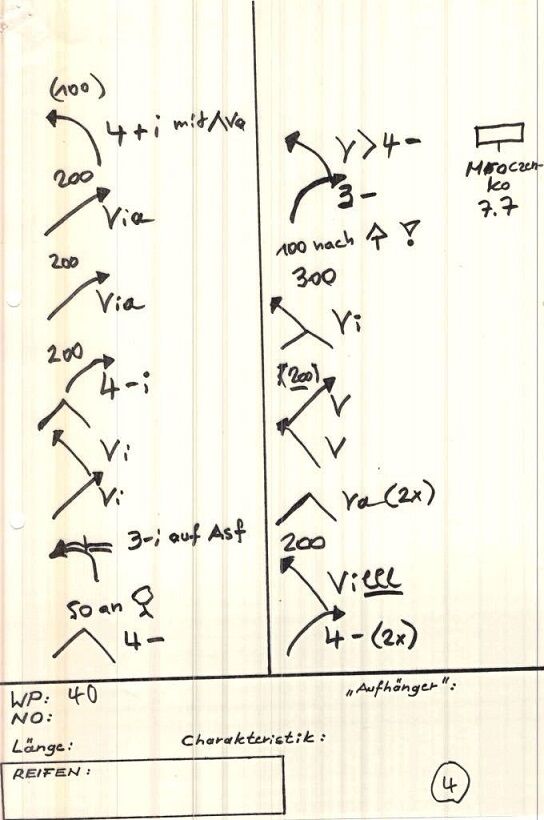 (100)
4+i mit ∧Va
200
Via
200
Via
200
4-i
Vi
Vi
3-i auf Asf
50 an
4-
V>4-
3-
100 nach ↑ !
300
Vi
(200)
V
V
Va (2x)
200
Vi
4-(2x)
ko
7.7
WP: 40
NO:
„Aufhänger“:
Länge:
Charakteristik:
REIFEN:
4